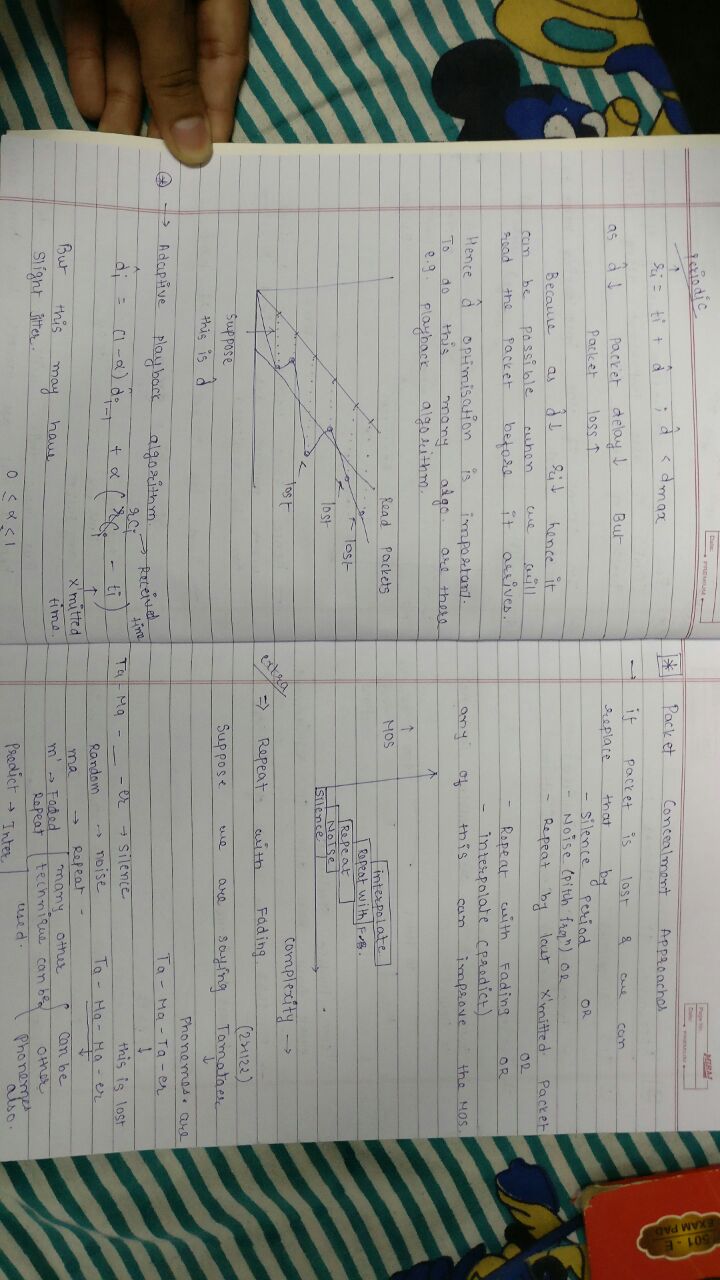 Periodic
ri = ti + d̂ ; d̂ < dmax
as d̂ ↓ packet delay ↓ But
packet loss ↑
Because as d̂ ↓ ri ↓ hence it
can be possible when we will
read the packet before it arrives.
Hence d̂ optimisation is important.
To do this many algo. are there
e.g. playback algorithm.
Read packets
lost
lost
lost
Suppose
this is d̂
* → Adaptive playback algorithm
→ Received time
d̂i = (1-α) d̂i-1 + α ( - ti )
X'mitted
time.
But this may have
slight jitter.
0 ≤ α ≤ 1
Date:
PREMIUM
Page No:
Date:
PREMIUM
* Packet Concealment Approaches
→ if packet is lost & we can
replace that by
- Silence period OR
- Noise (pitch frqn) OR
- Repeat by last X'mitted packet
OR
- Repeat with Fading OR
- interpolate (predict)
any of this can improve the MOS.
↑
MOS
interpolate
Repeat with F
Repeat
Noise
Silence
complexity →
extra
⇒ Repeat with Fading.
Suppose we are saying Tamataer
↓
Phonemes are
Ta - Ma - Ta - er
↓
this is lost
Ta - Ma - __ - er → Silence
Random → noise
ma → Repeat - Ta - Ma - Ma - er
m' → Faded Repeat
many other technique can be used.
can be other phonemes also.
Predict → Inter
501 - E
EXAM PAD